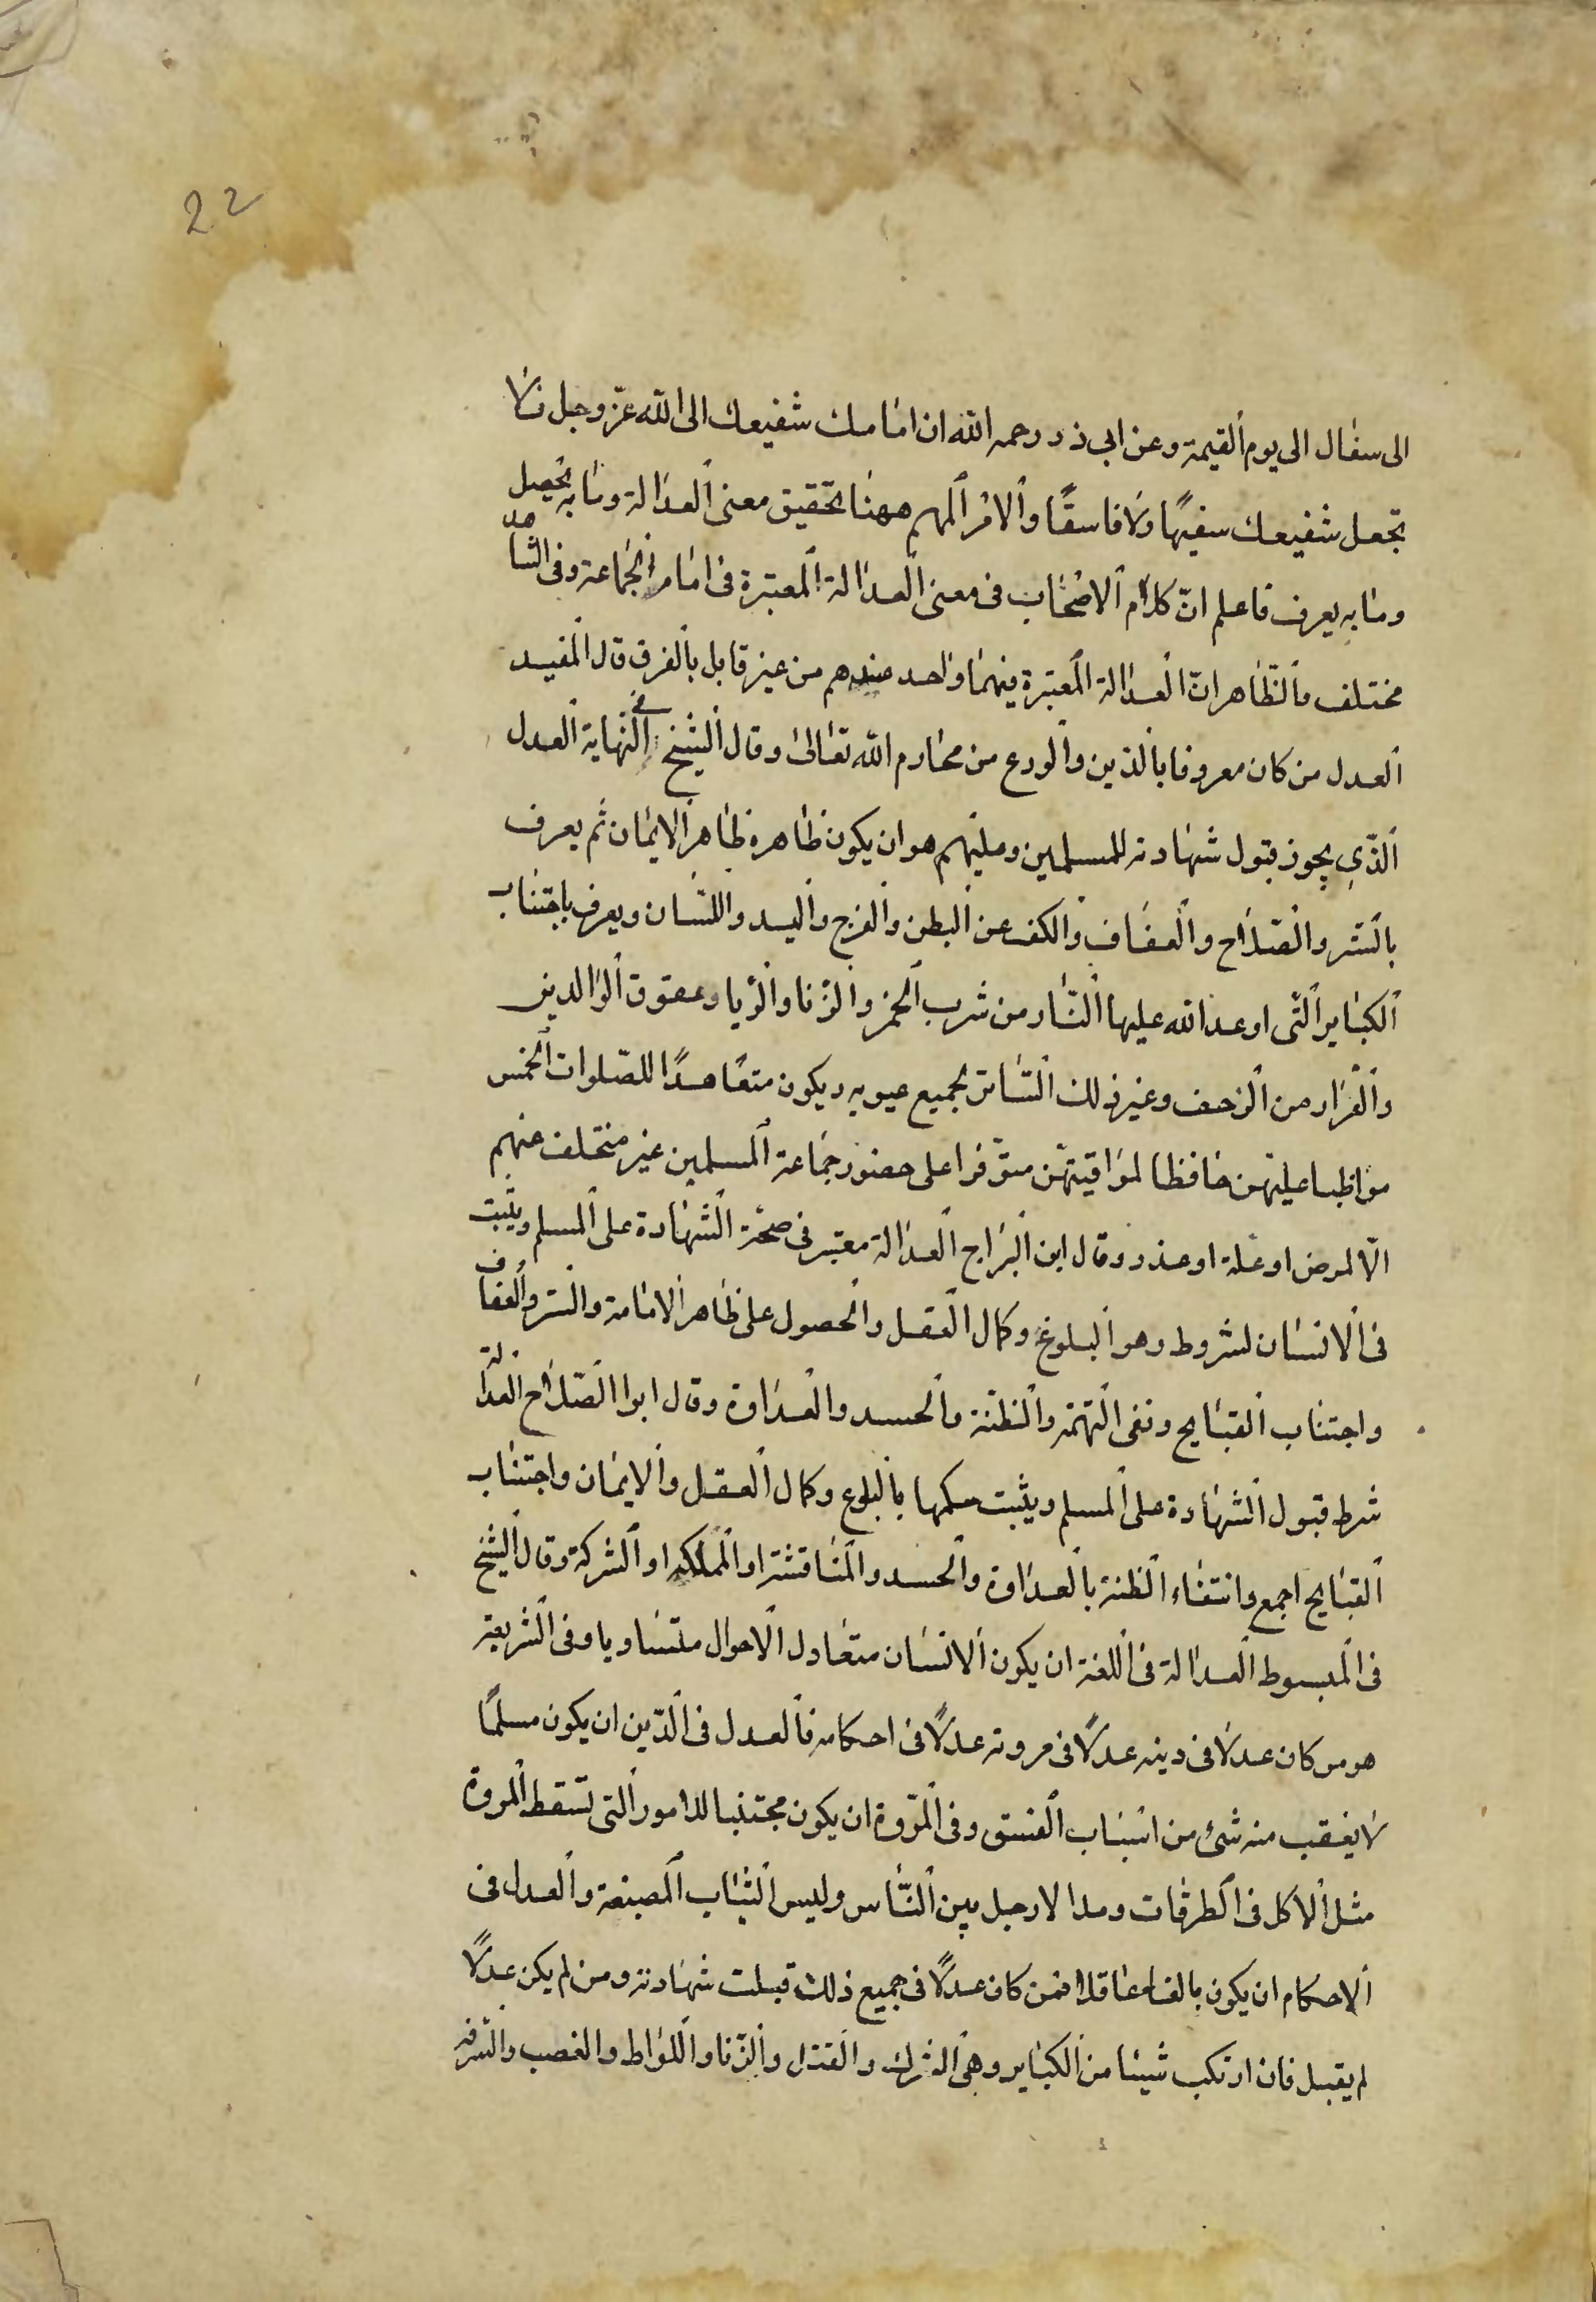 22
الى سفال الى يوم القيمة وعن ابي ذر رحمه الله ان امامك شفيعك الى الله عزّ وجل فلا
تجعل شفيعك سفيهًا ولا فاسقًا والامر المهم ههنا تحقيق معنى العدالة وما به يحصل
وما به يعرف فاعلم انّ كلام الاصحاب فى معنى العدالة المعتبرة فى امام الجماعة وفى الشاهد
مختلف والظاهر انّ العدالة المعتبرة فيهما واحد عندهم من غير قابل بالفرق قال المفيد
العدل من كان معروفا بالدّين والورع من محارم الله تعالى وقال الشيخ فى النهاية العدل
الّذى يجوز قبول شهادته للمسلمين وعليهم هو ان يكون ظاهره ظاهر الايمان ثم يعرف
بالستر والصّلاح والعفاف والكف عن البطن والفرج واليد واللسان ويعرف باجتناب
الكباير الّتى اوعد الله عليها النّار من شرب الخمر والزّنا والرّيا وعقوق الوالدين
والفرار من الزحف وغير ذلك السّاتر لجميع عيوبه ويكون متعاهدًا للصّلوات الخمس
مواظبا عليهنّ حافظا لمواقيتهنّ متوّفرا على حضور جماعة المسلمين غير متخلف عنهم
الّا لمرض او علّة او عذر وقال ابن البرّاج العدالة معتبر فى صحّة الشهادة على المسلم ويثبت
فى الانسان لشروط وهو البلوغ وكمال العقل والحصول على ظاهر الامامة والستر والعفاف
واجتناب القبايح ونفى التهمة والظنّة والحسد والعداوة وقال ابوا الصّلاح العدالة
شرط قبول الشهادة على المسلم ويثبت حكمها بالبلوع وكمال العقل والايمان واجتناب
القبايح اجمع وانتفاء الظنة بالعداوة والحسد والمناقشة او المملكه او الشركة وقال الشيخ
فى المبسوط العدالة فى اللغة ان يكون الانسان متعادل الاحوال متساويا وفى الشريعة
هو من كان عدلًا فى دينه عدلًا فى مروته عدلًا فى احكامه فالعدل فى الدّين ان يكون مسلمًا
لا يعقب منه شئ من اسباب الفسق وفى المرّوة ان يكون مجتنبا للامور التى تسقط المروة
مثل الاكل فى الطرقات ومد الارجل بين النّاس ولبس الثياب المصبغة والعدل فى
الاحكام ان يكون بالغا عاقلا فمن كان عدلًا فى جميع ذلك قبلت شهادته ومن لم يكن عدلًا
لم يقبل فان ارتكب شيئا من الكباير وهى الشرك والقتل والزّنا واللواط والغصب والسرقة